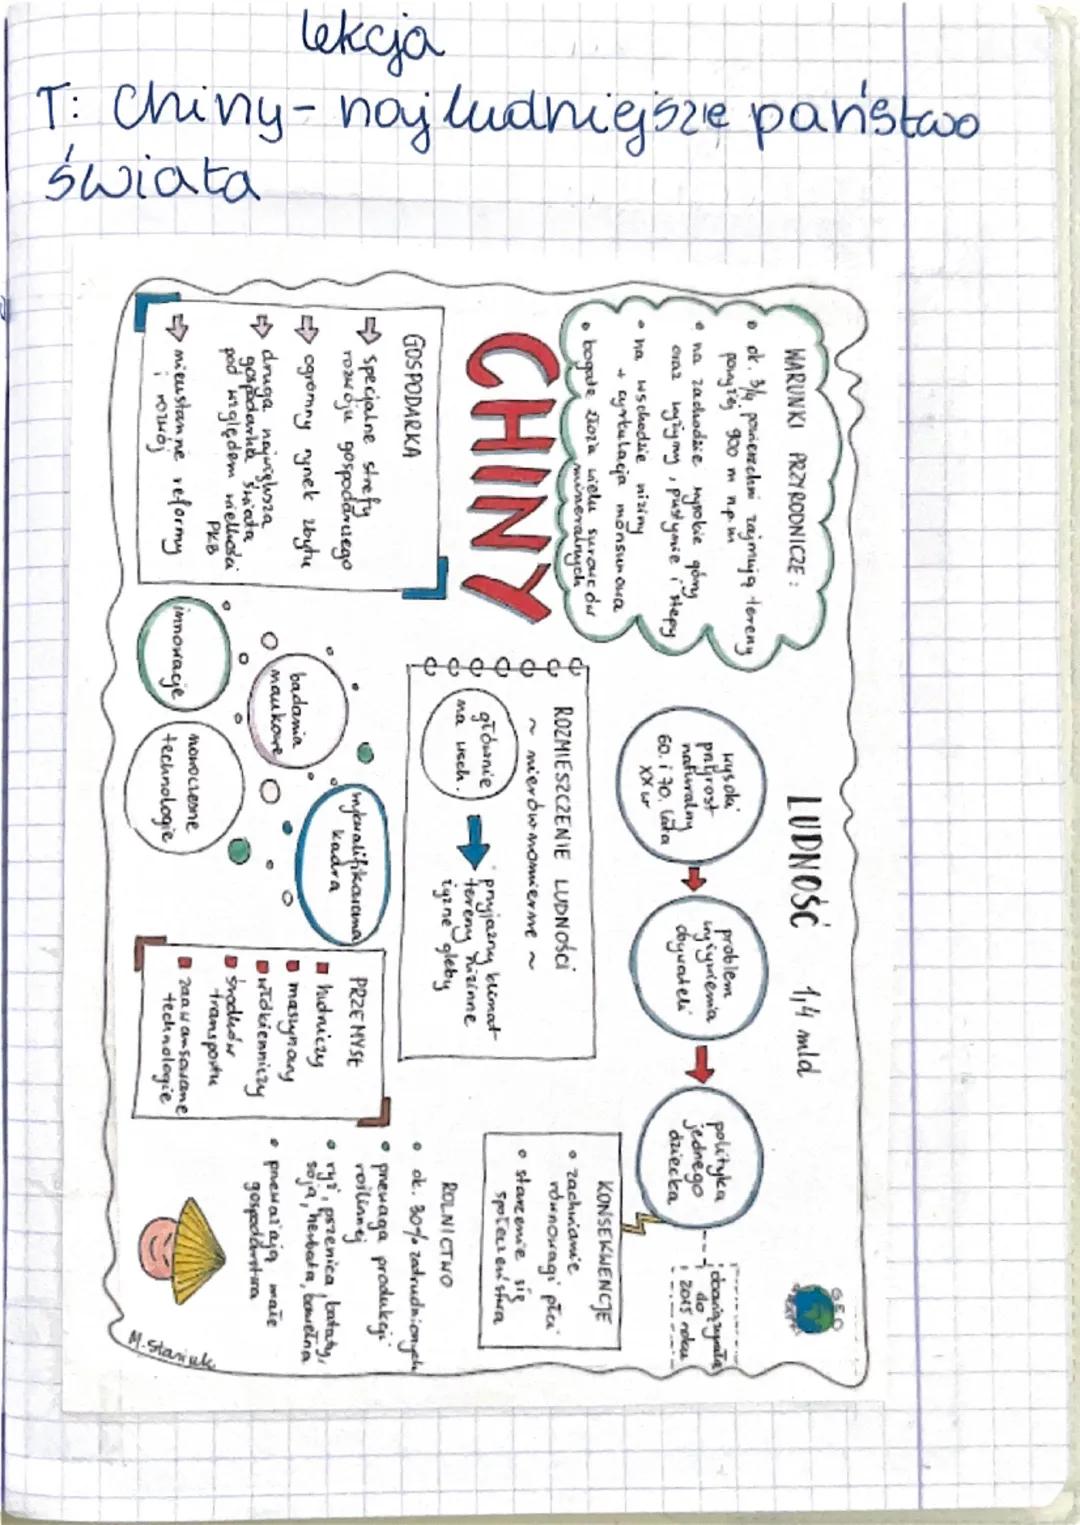 lekcja
T: Chiny - najludniejsze państwo
świata
WARUNKI PRZYRODNICZE:
• ok. 3/4 powierzchni zajmują tereny
powyżej 900 m n.p.m
• na zachodzie wysokie góry
oraz wyżyny, pustynie i stepy
• na wschodzie niziny
+ cyrkulacja monsunowa
• bogate złoża wielu surowców
mineralnych
CHINY
GOSPODARKA
⇨ specjalne strefy
rozwoju gospodarczego
⇨ ogromny rynek zbytu
⇨ druga największa
gospodarka świata
pod względem wielkości
PKB
⇨ nieustanne reformy
i rozwój
LUDNOŚĆ 1,4 mld
wysoki
przyrost
naturalny
60. i 70. lata
XX w
problem
wyżywienia
obywateli
polityka
jednego
dziecka
obowiązywała
do
2015 roku
GEO
KONSEKWENCJE
• zachwianie
równowagi płci
• starzenie się
społeczeństwa
ROZMIESZCZENIE LUDNOŚCI
~ nierównomierne ~
głównie
na wsch.
przyjazny klimat
tereny nizinne
żyzne gleby
wykwalifikowana
kadra
badania
naukowe
innowacje
nowoczesne
technologie
PRZEMYSŁ
hutniczy
maszynowy
włókienniczy
środków
transportu
zaawansowane
technologie
ROLNICTWO
• ok. 30% zatrudnionych
• przewaga produkcji
roślinnej
• ryż, pszenica, bataty,
soja, herbata, bawełna
• przeważają małe
gospodarstwa
M. Stasiuk